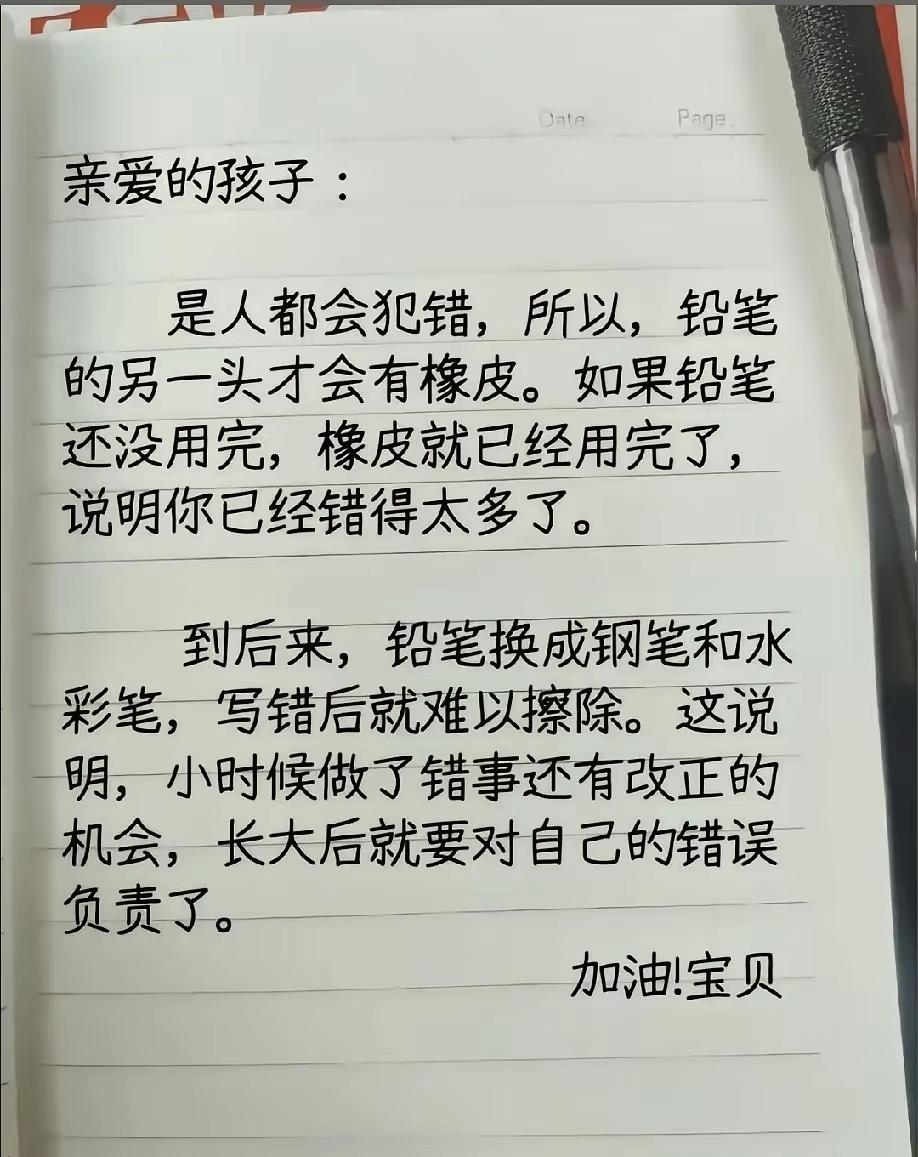 Date
Page.
亲爱的孩子：
是人都会犯错，所以，铅笔
的另一头才会有橡皮。如果铅笔
还没用完，橡皮就已经用完了，
说明你已经错得太多了。
到后来，铅笔换成钢笔和水
彩笔，写错后就难以擦除。这说
明，小时候做了错事还有改正的
机会，长大后就要对自己的错误
负责了。
加油!宝贝